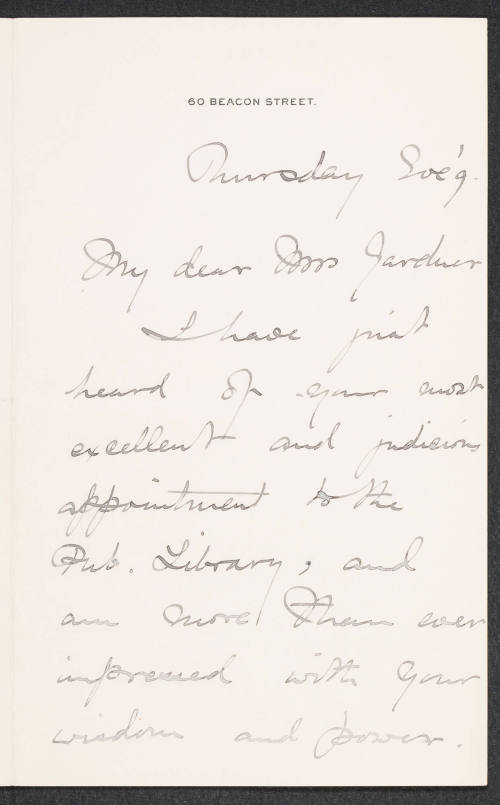 60 BEACON STREET.
Thursday Eve'g.
My dear Mrs Gardner
I have just
heard of your most
excellent and judicious
appointment to the
Pub. Library, and
am more than ever
impressed with your
wisdom and power.